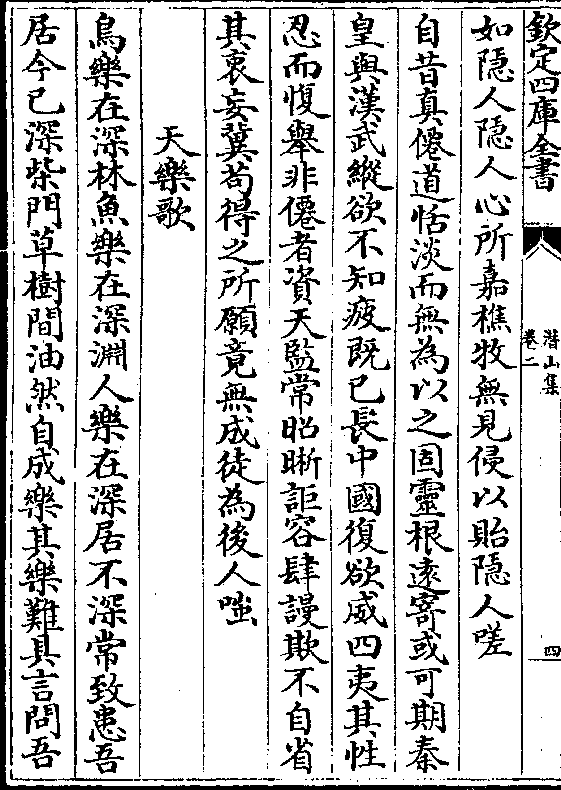 欽定四庫全書
潛山集
卷二
四
如隠人隠人心所嘉樵牧無見侵以貽隠人嗟
自昔真僊道恬淡而無為以之固靈根逺寄或可期秦
皇與漢武縱欲不知疲既已長中國復欲威四夷其性
忍而愎舉非僊者資天監常昭晰詎容肆謾欺不自省
其衷妄冀茍得之所願竟無成徒為後人嗤
天樂歌
鳥樂在深林魚樂在深淵人樂在深居不深常致患吾
居今已深柴門草樹間油然自成樂其樂難具言問吾